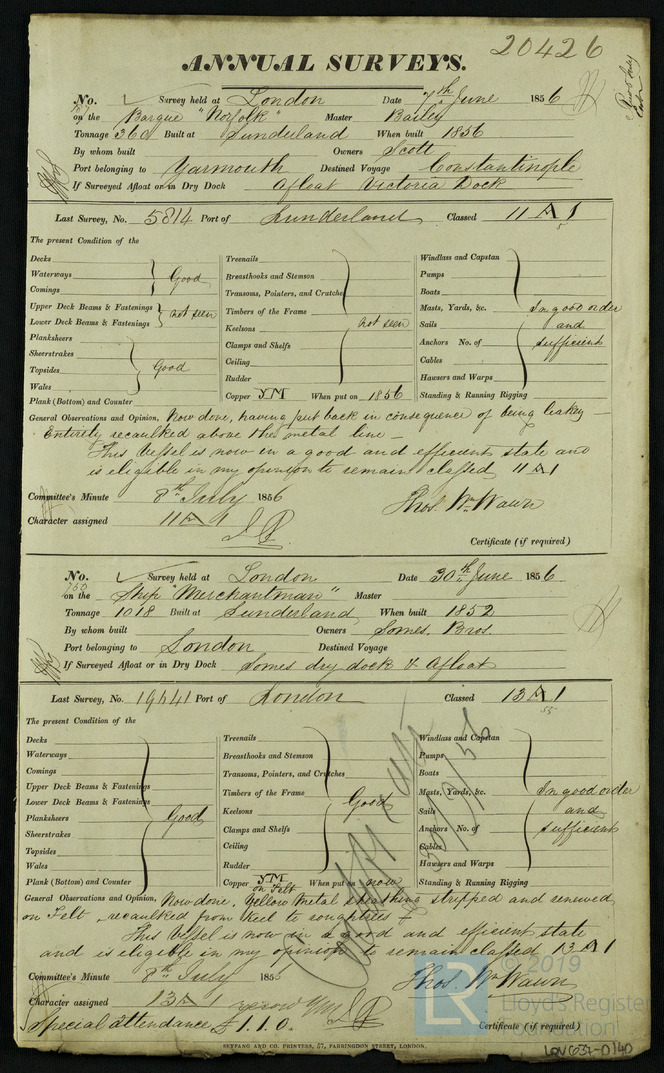 20426
ANNUAL SURVEYS.
No. Survey held at London Date 7th June 1856
on the Barque "Norfolk" Master Bailey
Tonnage 360 Built at Sunderland When built 1856
By whom built Owners Scott
Port belonging to Yarmouth Destined Voyage Constantinople
If Surveyed Afloat or in Dry Dock Afloat Victoria Dock
Last Survey, No. 5814 Port of Sunderland Classed 11 A 1
The present Condition of the
Decks
Waterways
Comings
Good
Upper Deck Beams & Fastenings
Lower Deck Beams & Fastenings
not seen
Planksheers
Sheerstrakes
Topsides
Wales
Good
Plank (Bottom) and Counter
Treenails
Breasthooks and Stemson
Transoms, Pointers, and Crutches
Timbers of the Frame
Keelsons
not seen
Clamps and Shelfs
Ceiling
Rudder
Copper YM When put on 1856
Windlass and Capstan
Pumps
Boats
Masts, Yards, &c.
Sails
Anchors No. of
Cables
Hawsers and Warps
Standing & Running Rigging
In good order
and
sufficient
General Observations and Opinion, Now done, having put back in consequence of being leakey
Entirely recaulked above the metal line
This Vessel is now in a good and efficient state and
is eligible in my opinion to remain classed 11 A 1
Committee's Minute 8th July 1856
Thos. Wm. Wawn
Character assigned 11 A 1
Certificate (if required)
No. Survey held at London Date 30th June 1856.
760
on the Ship "Merchantman" Master
Tonnage 1018 Built at Sunderland When built 1852
By whom built Owners Somes. Bros.
Port belonging to London Destined Voyage
If Surveyed Afloat or in Dry Dock Somes dry dock & Afloat
Last Survey, No. 19441 Port of London Classed 13 A 1
55
The present Condition of the
Decks
Waterways
Comings
Upper Deck Beams & Fastenings
Lower Deck Beams & Fastenings
Planksheers
Good
Sheerstrakes
Topsides
Wales
Plank (Bottom) and Counter
Treenails
Breasthooks and Stemson
Transoms, Pointers, and Crutches
Timbers of the Frame
Keelsons
Good
Clamps and Shelfs
Ceiling
Rudder
Copper YM on Felt When put on now
Windlass and Capstan
Pumps
Boats
Masts, Yards, &c.
Sails
Anchors No. of
Cables
Hawsers and Warps
Standing & Running Rigging
In good order
and
sufficient
General Observations and Opinion, Now done, Yellow Metal sheathing stripped and renewed
on Felt, recaulked from Keel to
This Vessel is now in a good and efficient state
and is eligible in my opinion to remain classed 13 A 1
Committee's Minute 8th July 1856
Thos. Wm. Wawn
Character assigned 13 A 1
Special attendance £1.1.0.
Certificate (if required)
SEYFANG AND CO. PRINTERS, 57, FARRINGDON STREET, LONDON.
2019
LR Lloyd's Register
Foundation